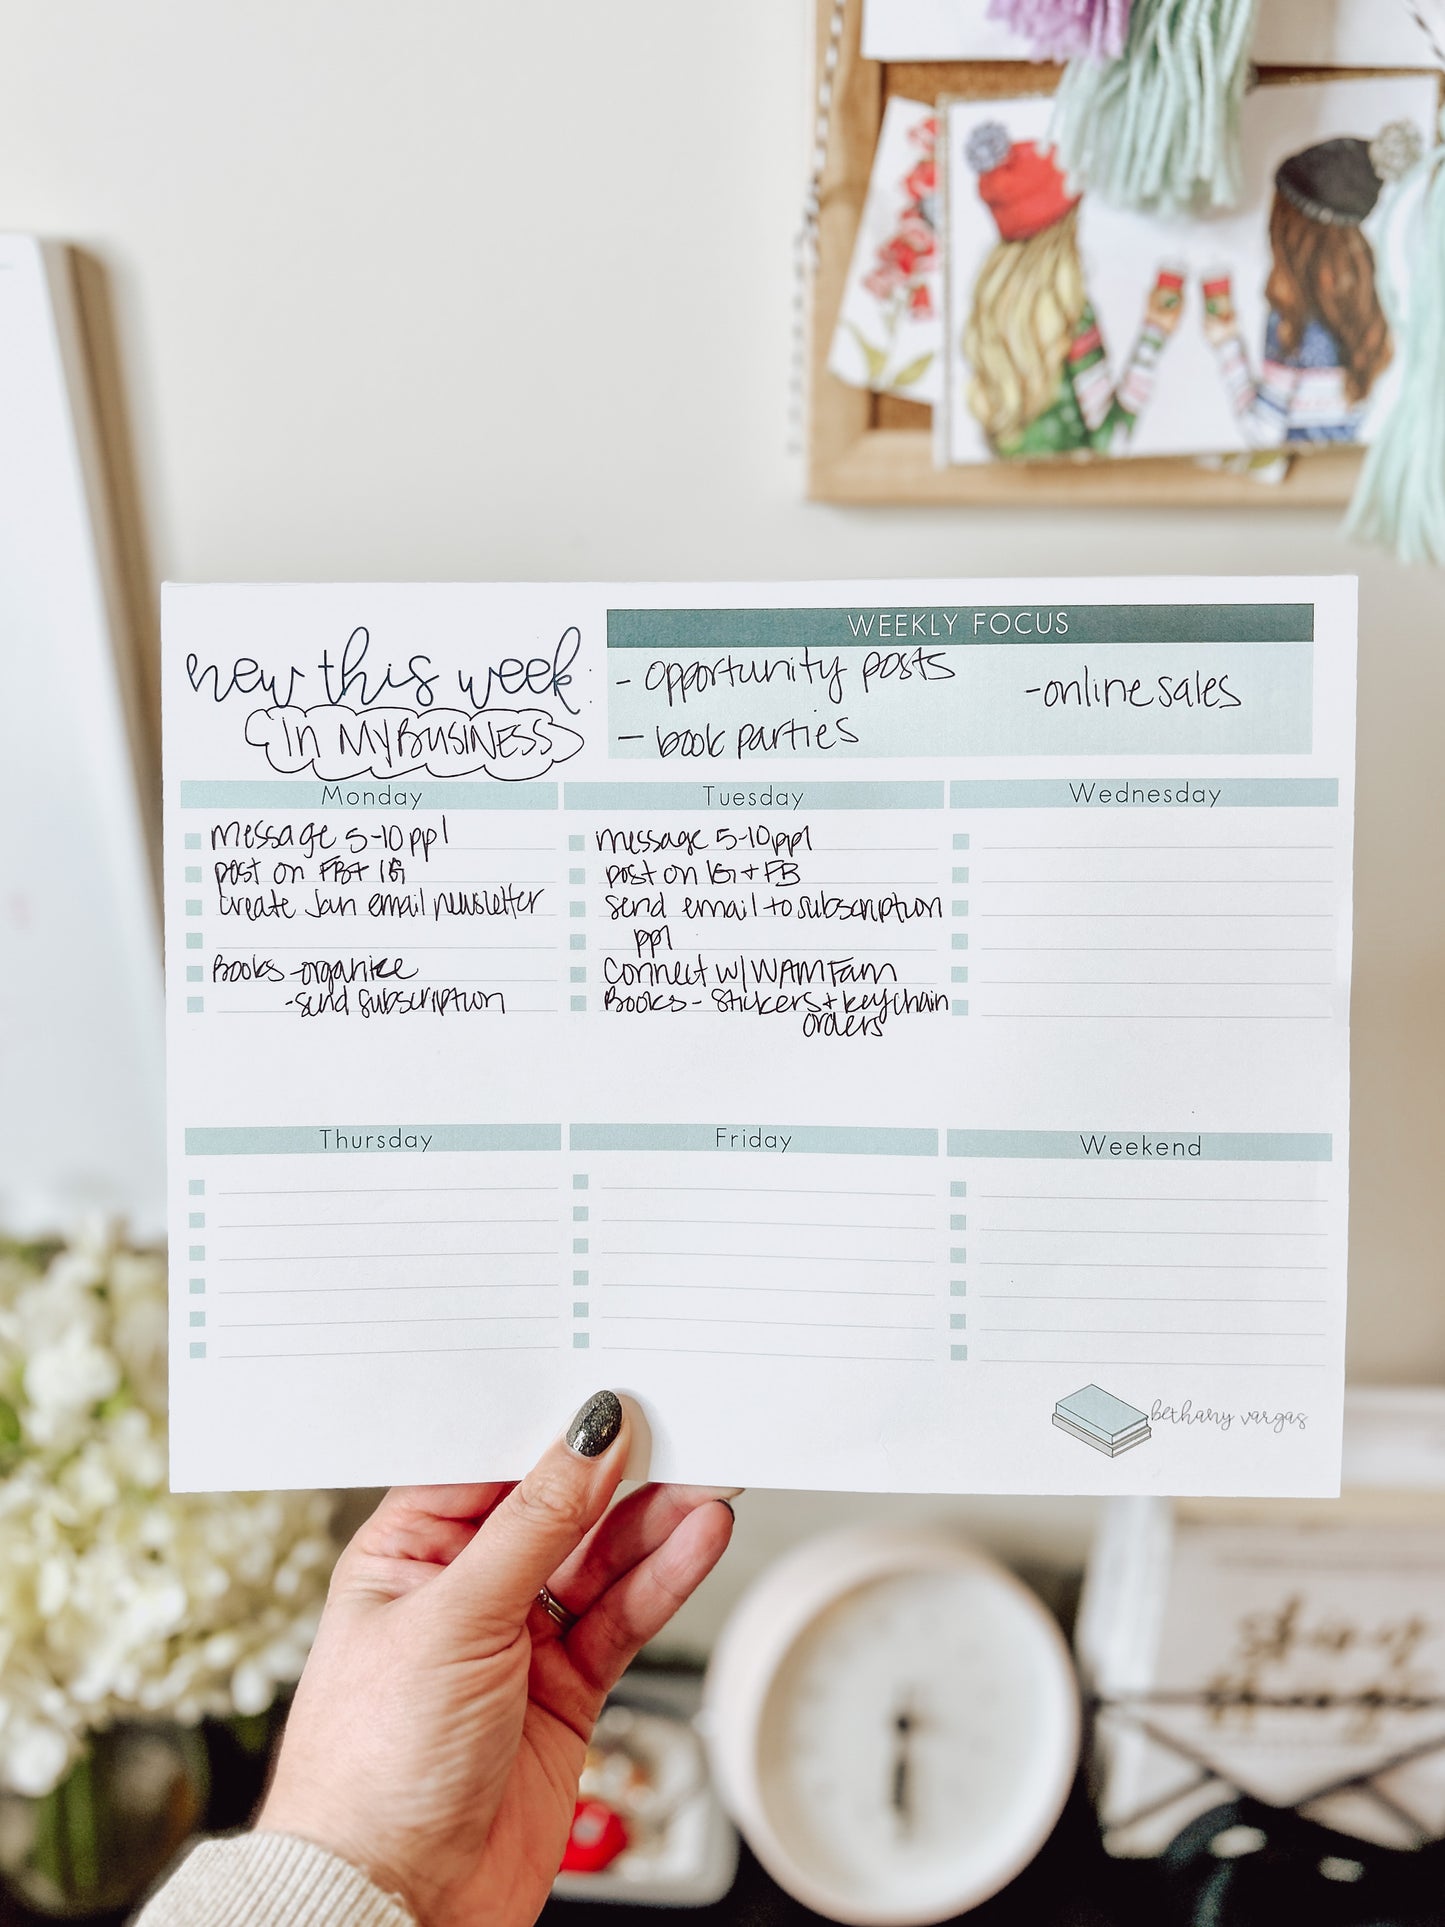 new this week:
in MY BUSINESS
WEEKLY FOCUS
- opportunity posts
- book parties
- online sales
Monday
message 5-10 ppl
post on FB + IG
create Jan email newsletter
Books - organize
- send subscription
Tuesday
message 5-10 ppl
post on IG + FB
send email to subscription
ppl
connect w/ WAM Fam
Books - stickers + keychain
orders
Wednesday
Thursday
Friday
Weekend
bethany vargas